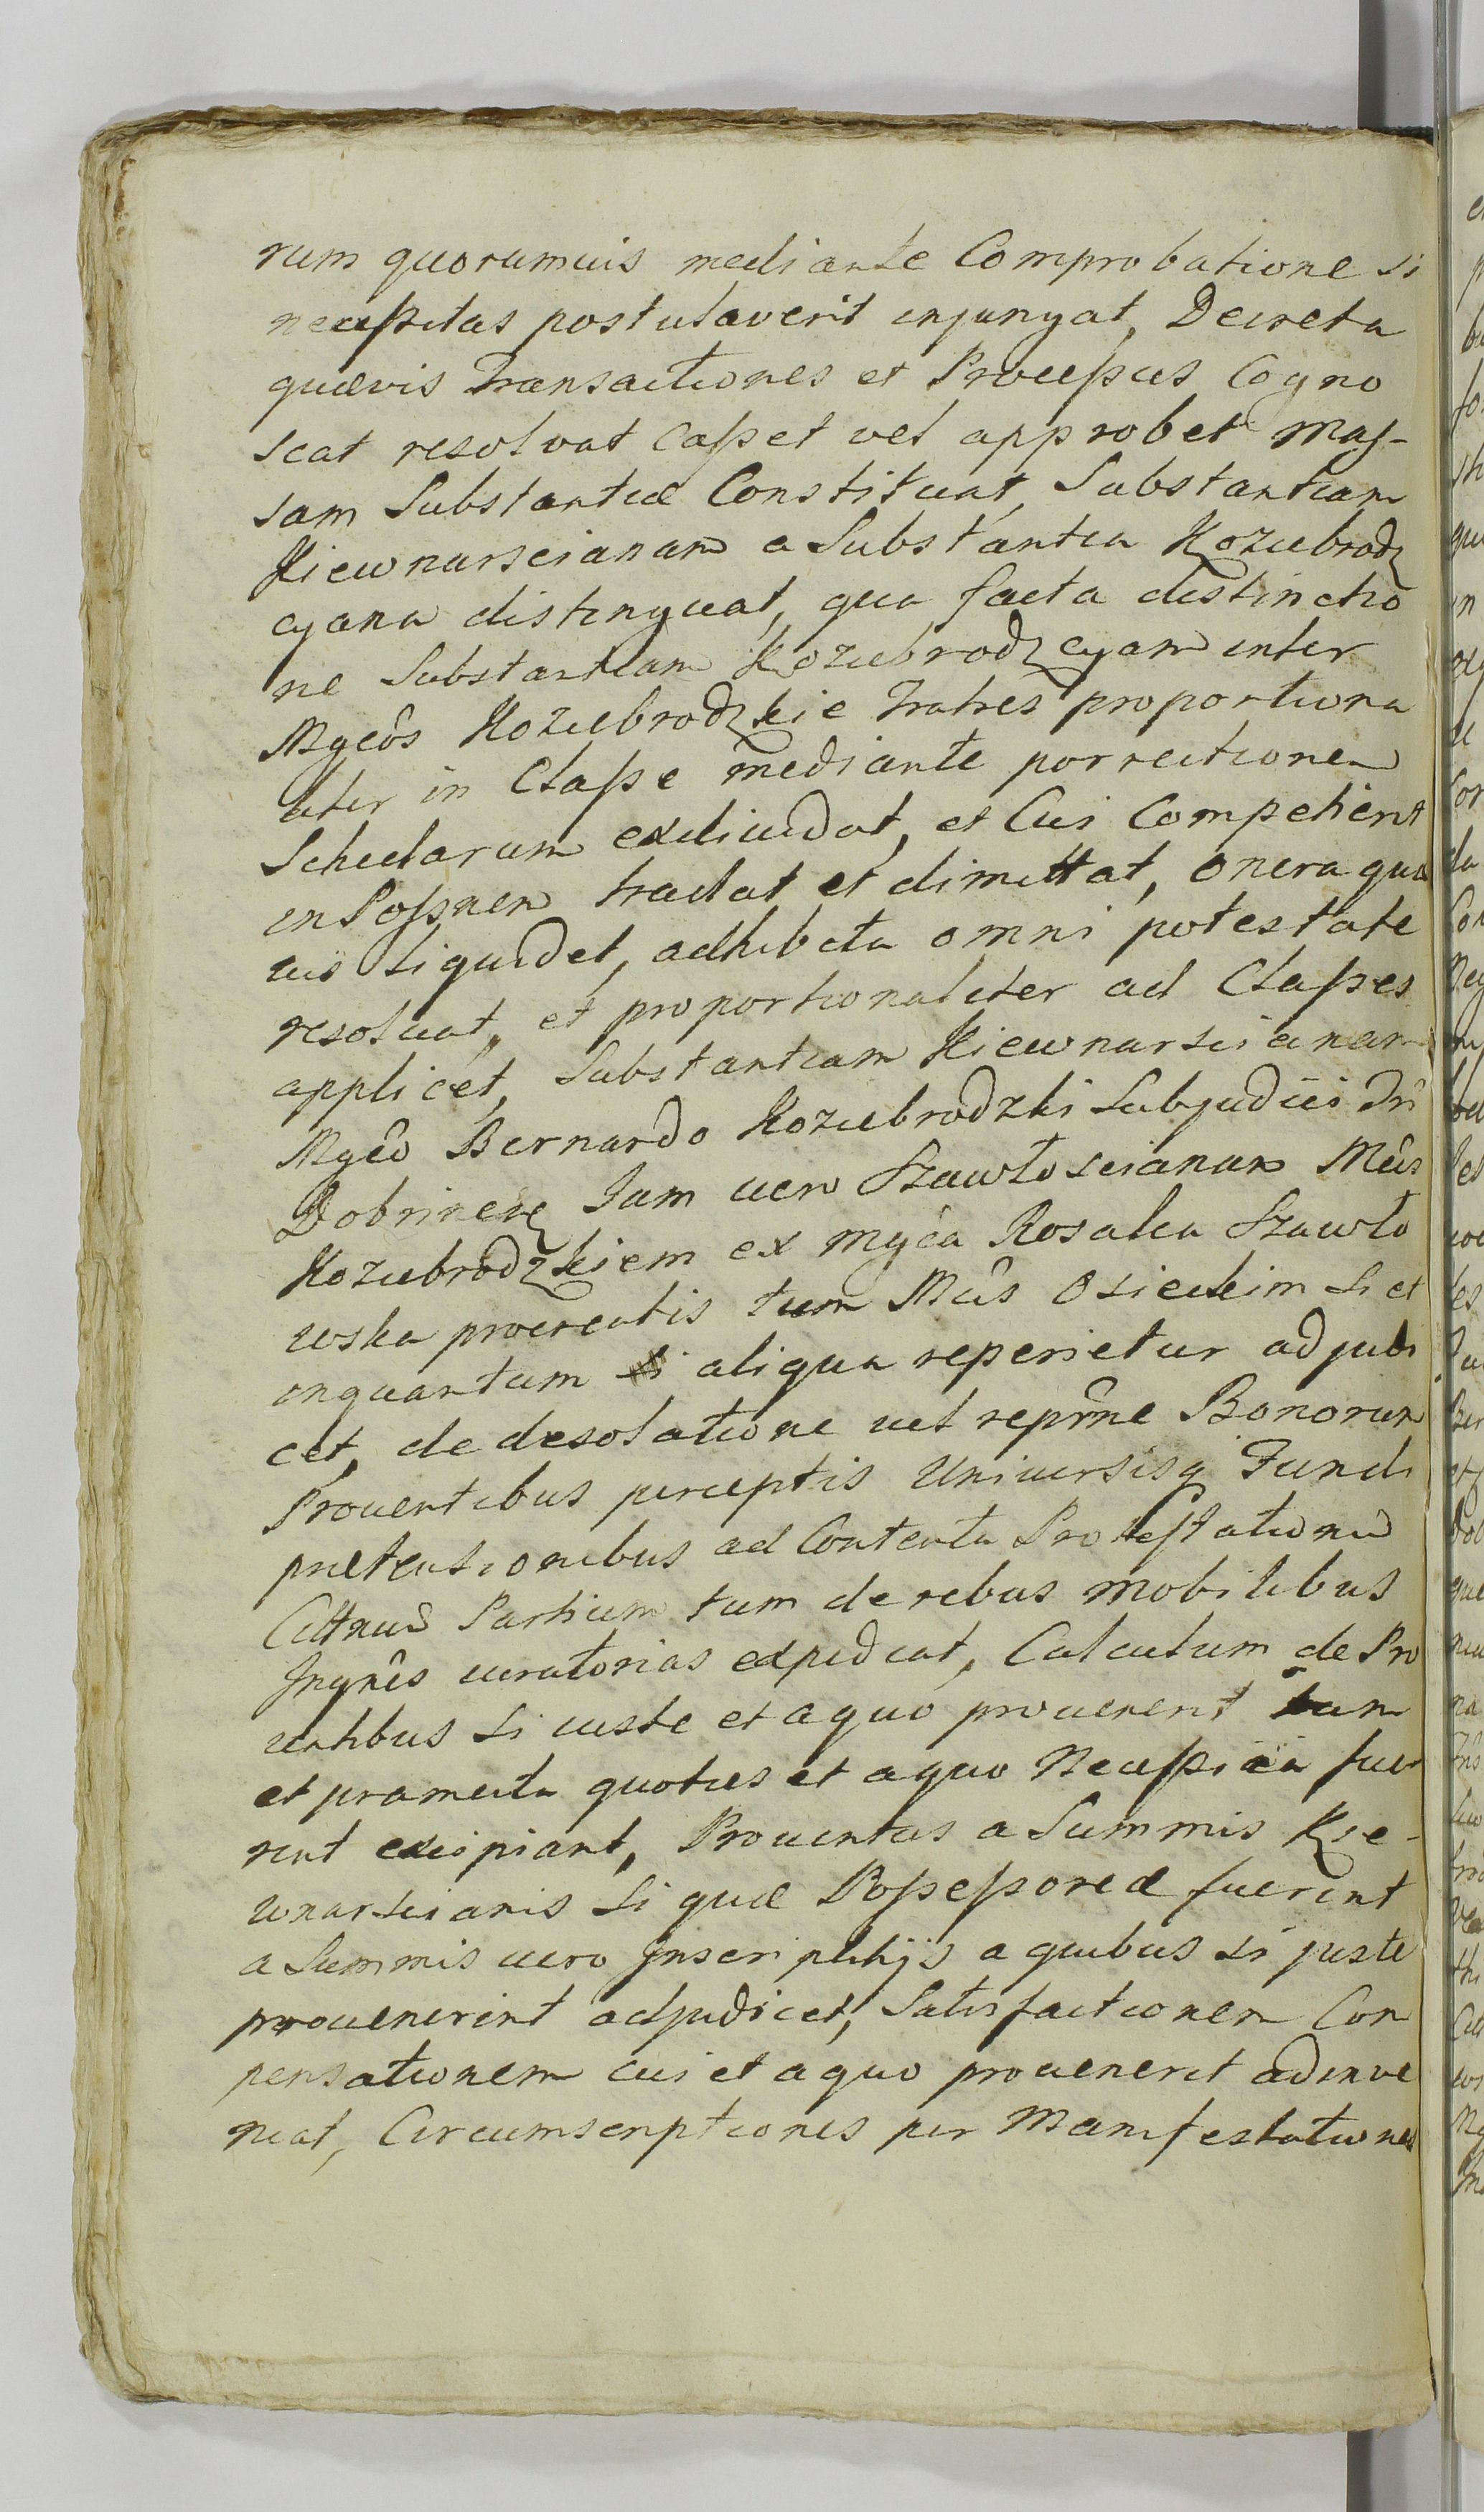 rum quorumuis mediante Comprobatione si
necessitas postulaverit injungat, Decreta
quævis Transactiones et Processus Cogno
scat resolvat Casset vel approbet Mas-
sam Substantiæ Constituat, Substantiam
Kiewnarscianam a Substantia Koziebrodz
cyana distinguat, qua facta distinctio
ne Substantiam Koziebrodzcyam inter
Mgcôs Koziebrodzkie Fratres proportiona
liter in Classe mediante porrectionem
Schedarum exdiuidat, et Cui Competierit
in Possnem tradat et dimittat, onera quæ
uis liquidet, adhibita omni potestate
resoluat, et proportionaliter ad Classes
applicet, Substantiam Kiewnarscianam
Mgcô Bernardo Koziebrodzki Subjudici Tri
Dobrinen Jam uero Szawłoscianam Mcîs
Koziebrodzkiem ex Mgca Rosalia Szawło
wska procreatis tum Mcîs Osieckim si et
inquantum aliqua reperietur adjudi
cet, de desolatione uel reprîne Bonorum
Prouentibus perceptis Uniuersisq Fundi
prætensionibus ad Contenta Protestationû
Citnuû Partium tum de rebus mobilibus
Inqnês iuratorias expediat, Calculum de Pro
uentibus si iuste et a quo prouenerit tum
et pramenta quoties et a quo Necessaria fue
rint excipiant, Prouentus a Summis Kie-
wnarscianis si quæ Possessoreæ fuerint
a Summis uero Inscriptitijs a quibus si juste
prouenerint adjudicet, Satisfactionem Con
pensationem cui et a quo prouenerit adinve
niat, Circumscriptiones per Manifestationes